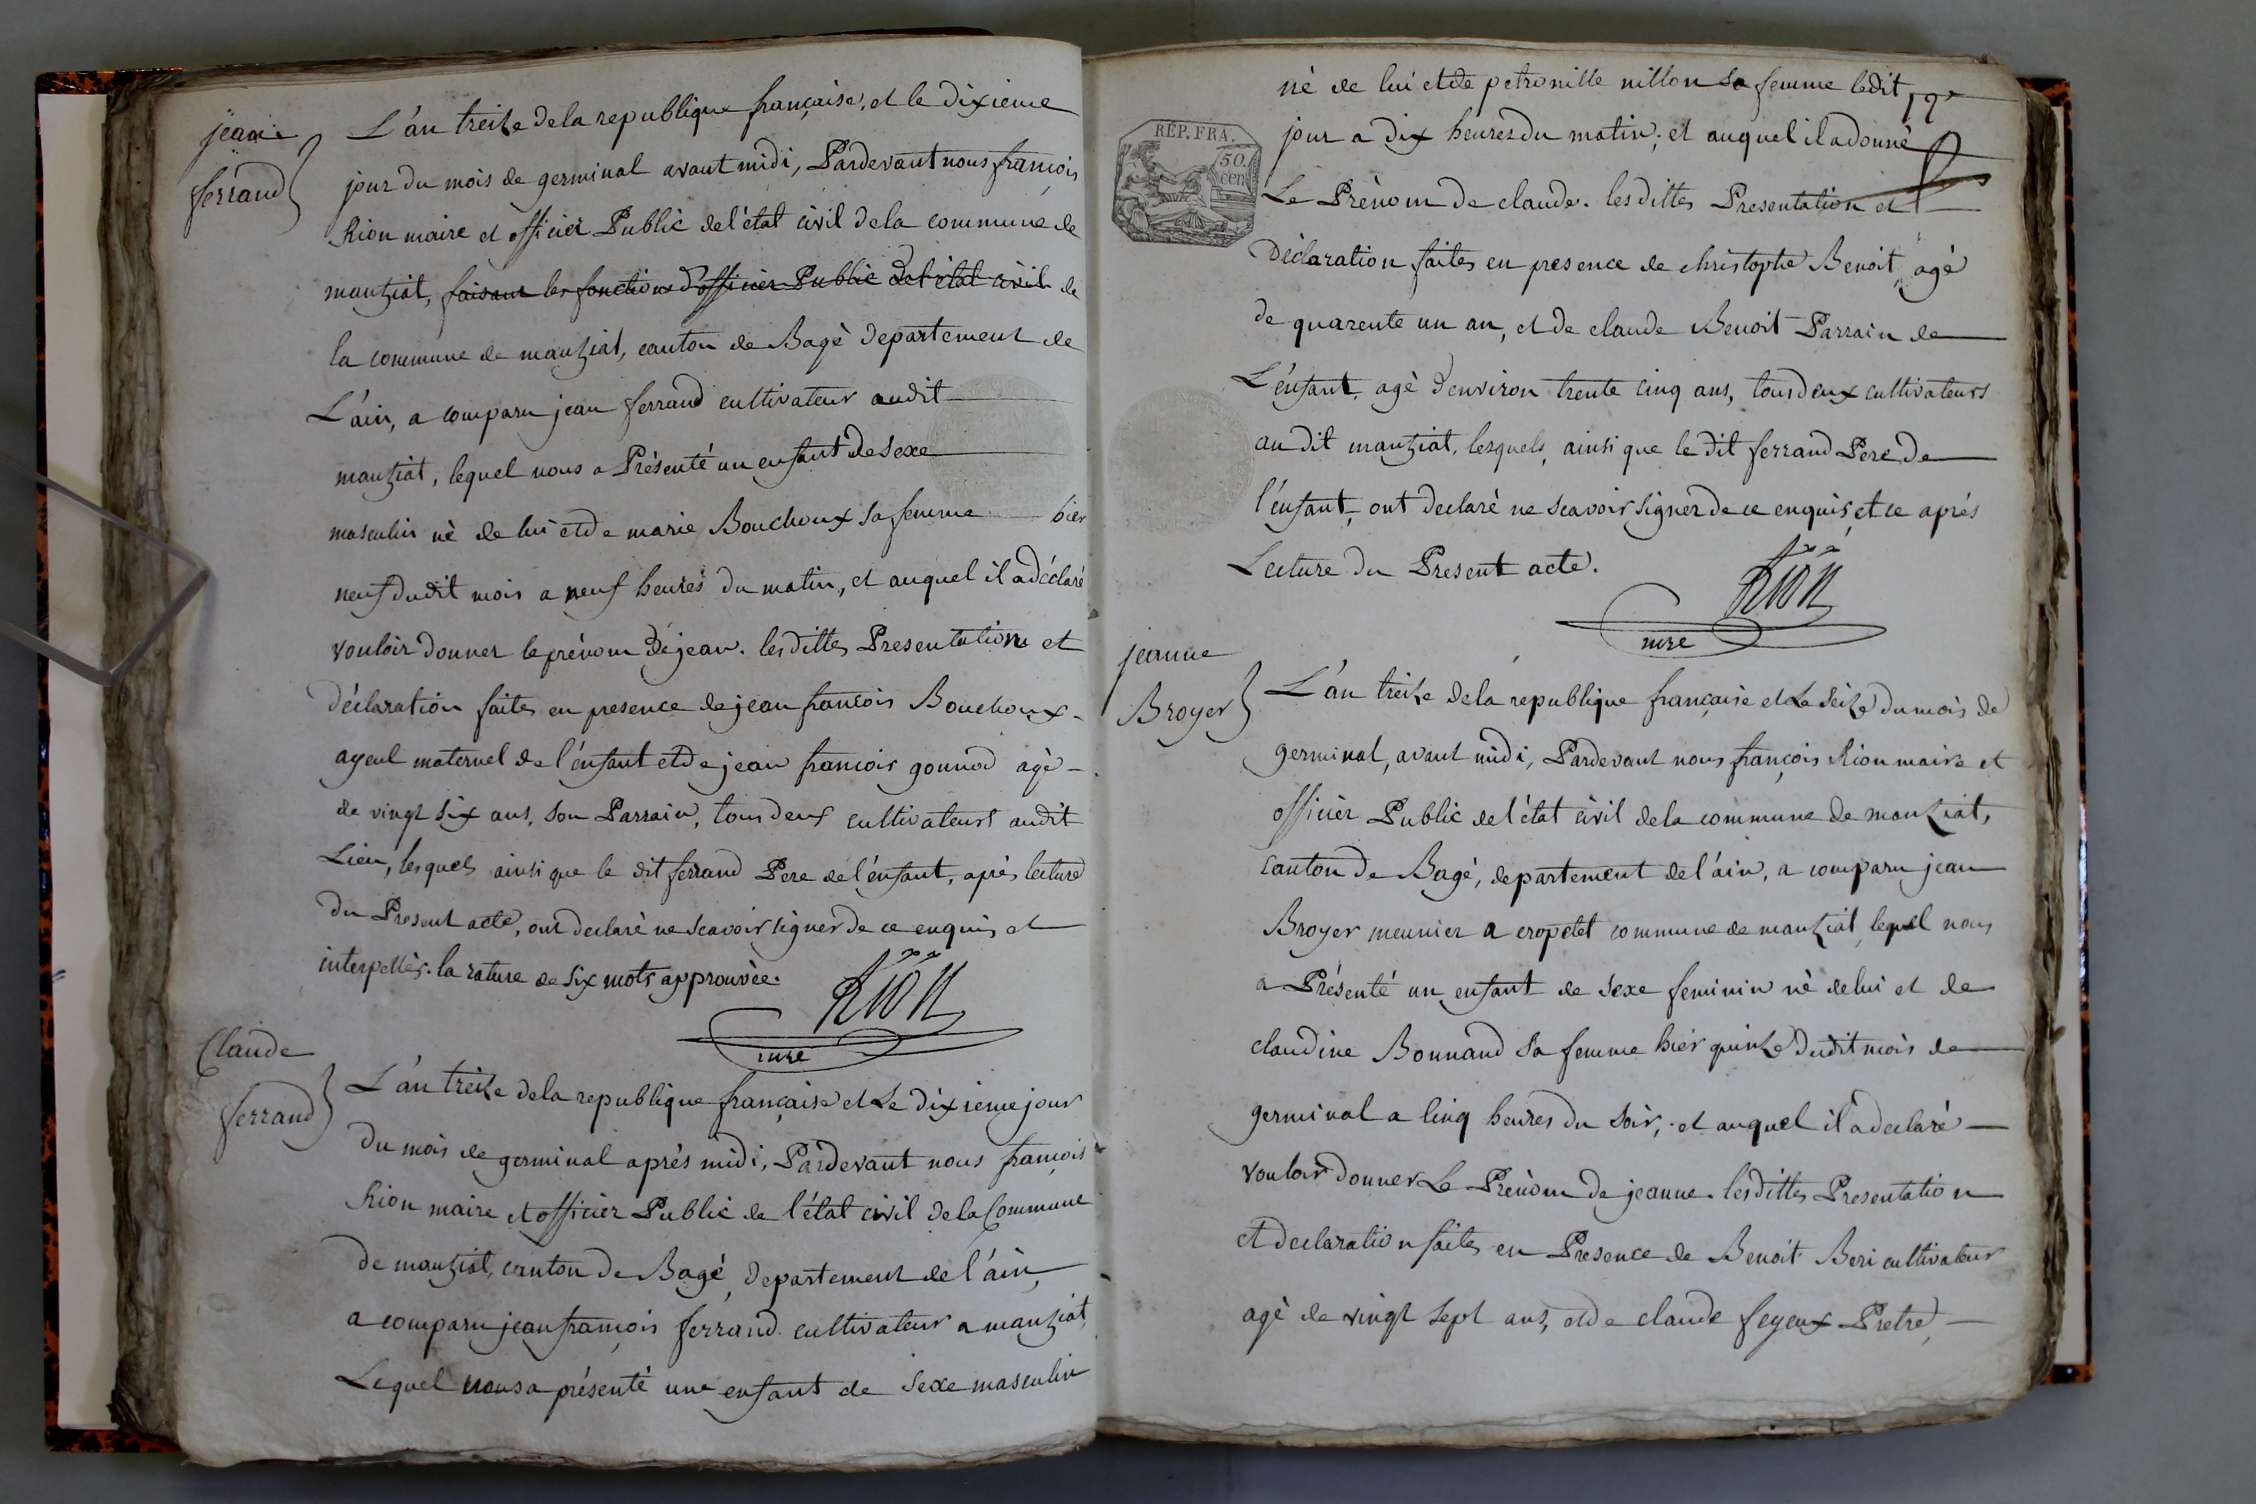 jean
ferrand
L'an treize de la republique française, et le dixieme
jour du mois de germinal avant midi, Pardevant nous françois
Rion maire et officier Public de l'état civil de la commune de
mantziat, faisant les fonctions d'officier Public de l'état civil de
la commune de mantziat, canton de Bagé departement de
L'ain, a comparu jean ferrand cultivateur audit
mantziat, lequel nous a Présenté un enfant de sexe
masculin né de lui et de marie Bouchoux sa femme hier
neuf dudit mois a neuf heures du matin, et auquel il a déclaré
vouloir donner le prénom de jean. les dittes Presentation et
Déclaration faites en presence de jean françois Bouchoux
ayeul maternel de l'enfant et de jean francois gonnod agè
de vingt six ans, son Parrain, tous deux cultivateurs audit
Lieu, lesquels ainsi que le dit ferrand Pere de l'énfant, après lecture
du Present acte, ont declaré ne scavoir signer de ce enquis et
interpellés. la rature de six mots approuvée.
Rion
mre
Claude
ferrand
L'an treize de la republique française et Le dixieme jour
du mois de germinal aprés midi, Pardevant nous françois
Rion maire et officier Public de l'état civil de la Commune
de mantziat, canton de Bagé, departement de l'áin,
a comparu jean françois ferrand cultivateur a mantziat,
Lequel nous a présenté une enfant de sexe masculin
né de lui et de petronille nillon sa femme ledit
jour a dix heures du matin; et auquel il a donné
Le Prénom de claude. les dittes Presentation et
Déclaration faites en presence de christophe Benoit, agé
de quarente un an, et de claude Benoit Parrain de
L'énfant, agè d'environ trente cinq ans, tous deux cultivateurs
au dit mantziat, lesquels, ainsi que le dit ferrand Pere de
l'énfant, ont declaré ne scavoir signer de ce enquis, et ce aprés
Lecture du Present acte.
Rion
mre
RÉP. FRA.
50.
cen
jeanne
Broyer
L'an treize de la republique française et Le Seize du mois de
germinal, avant midi, Pardevant nous françois Rion maire et
officier Public de l'état civil de la commune de mantziat,
canton de Bagé, departement de l'áin, a comparu jean
Broyer meunier a cropetet commune de mantziat, lequel nous
a Présenté un enfant de sexe feminin né de lui et de
claudine Bonnand sa femme hier quinze dudit mois de
germinal a cinq heures du soir, et auquel il a declaré
vouloir donner Le Prénom de jeanne. les dittes Presentation
et declaration faites en Presence de Benoit Beri cultivateur
agè de vingt sept ans, et de claude feyeux Pretre,